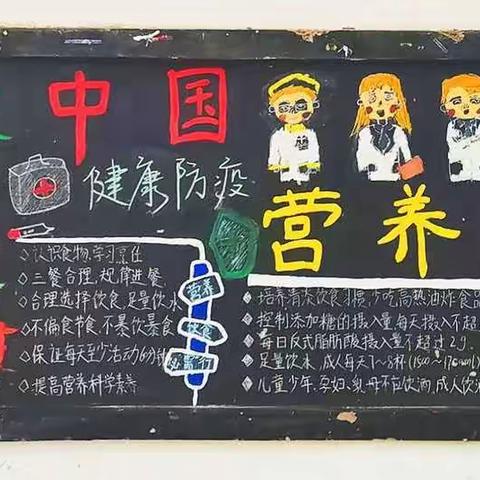 中国
健康防疫
◇认识食物,学习烹饪
◇三餐合理,规律进餐
◇合理选择饮食,足量饮水
◇不偏食节食,不暴饮暴食
◇保证每天至少活动60分钟
◇提高营养科学素养
营养
饮食
营养
培养清淡饮食习惯,少吃高热油炸食品
控制添加糖的摄入量每天摄入不超
每日反式脂肪酸摄入量不超过2g.
足量饮水,成人每天7~8杯(1500~1700ml)
儿童少年、孕妇、乳母不应饮酒,成人饮